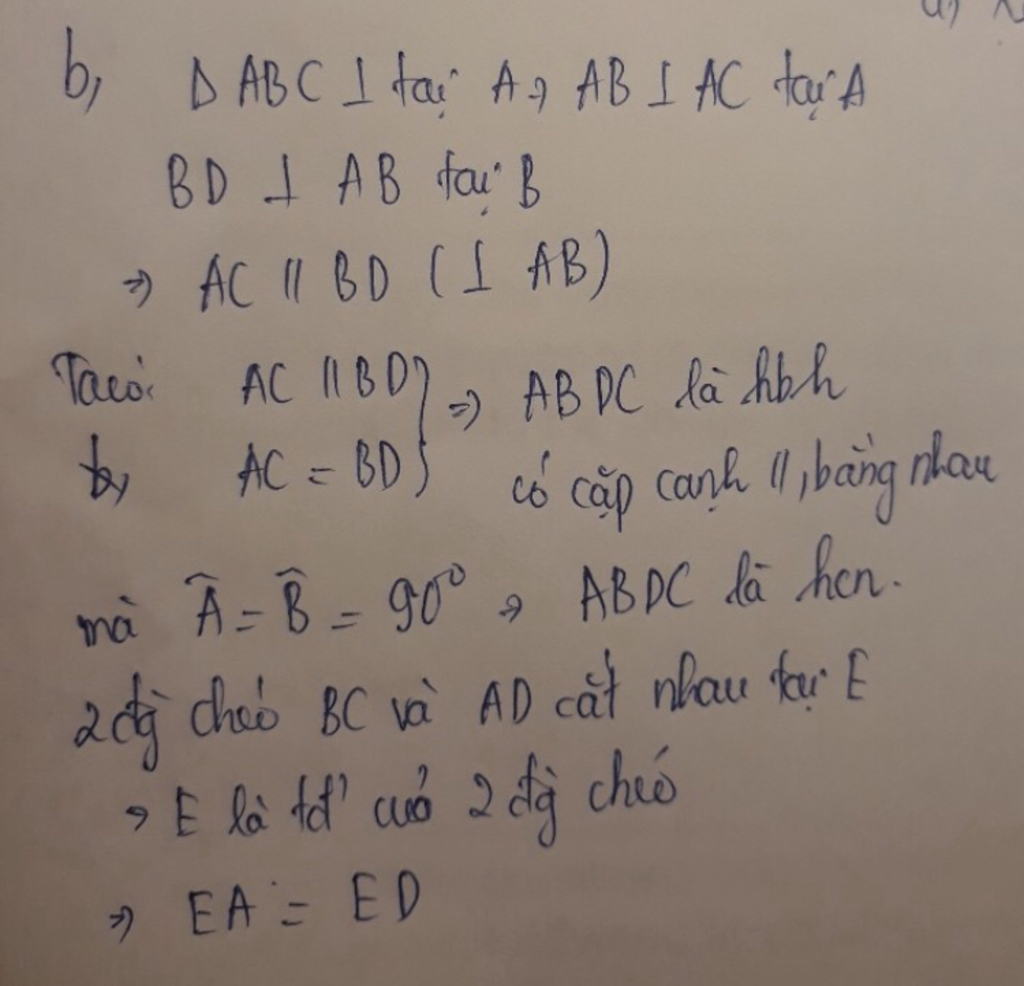 b, Δ ABC ⊥ tại A ⇒ AB ⊥ AC tại A
BD ⊥ AB tại B
⇒ AC // BD (⊥ AB)
Ta có: AC // BD } ⇒ ABDC là hbh
b, AC = BD } có cặp cạnh //, bằng nhau
mà Â = B̂ = 90° ⇒ ABDC là hcn.
2 đg̀ chéo BC và AD cắt nhau tại E
⇒ E là tđ' của 2 đg̀ chéo
⇒ EA = ED